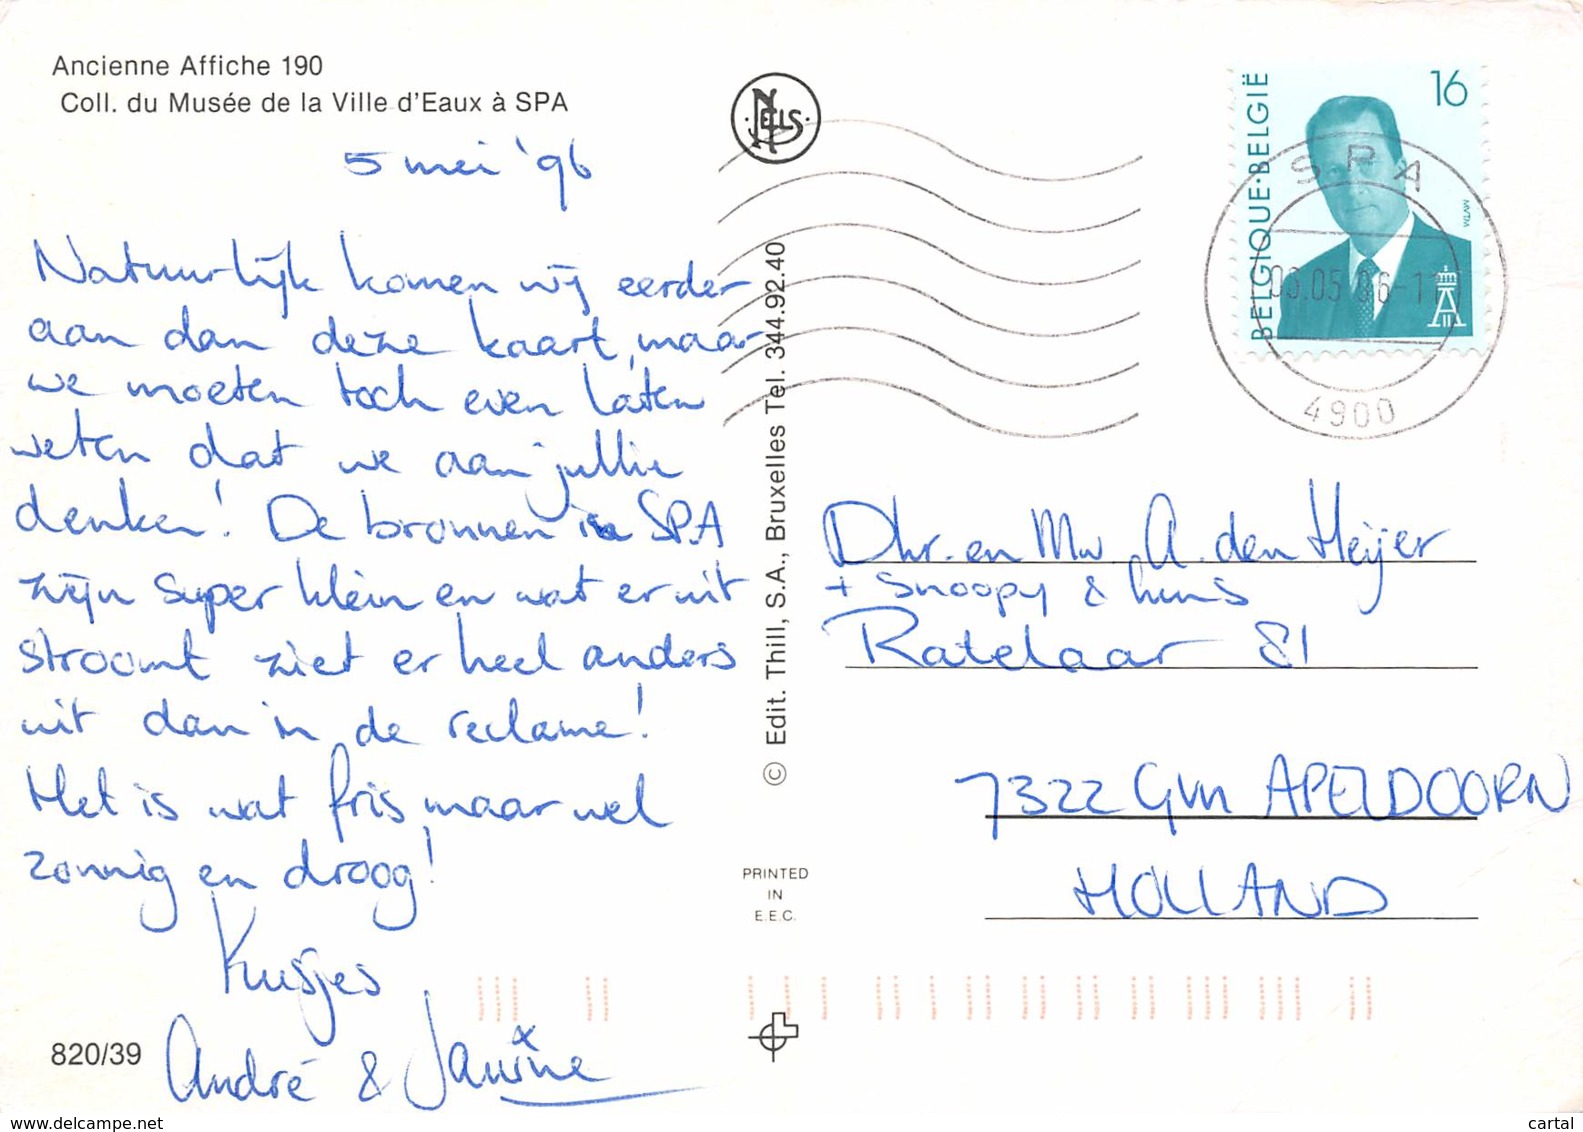 Ancienne Affiche 190
Coll. du Musée de la Ville d'Eaux à SPA
5 mei '96
Natuurlijk komen wij eerder
aan dan deze kaart, maar
we moeten toch even laten
weten dat we aan jullie
denken! De bronnen in SPA
zijn super klein en wat er uit
stroomt ziet er heel anders
uit dan in de reclame!
Het is wat fris maar wel
zonnig en droog!
Kusjes
André & Janine
820/39
NELS
© Edit. Thill, S.A., Bruxelles Tel. 344.92.40
PRINTED
IN
E.E.C.
BELGIQUE·BELGIË
16
MVTM
SPA
4900
Dhr. en Mw A. den Heijer
+ Snoopy &
Ratelaar 81
7322 APELDOORN
HOLLAND
www.delcampe.net
cartal